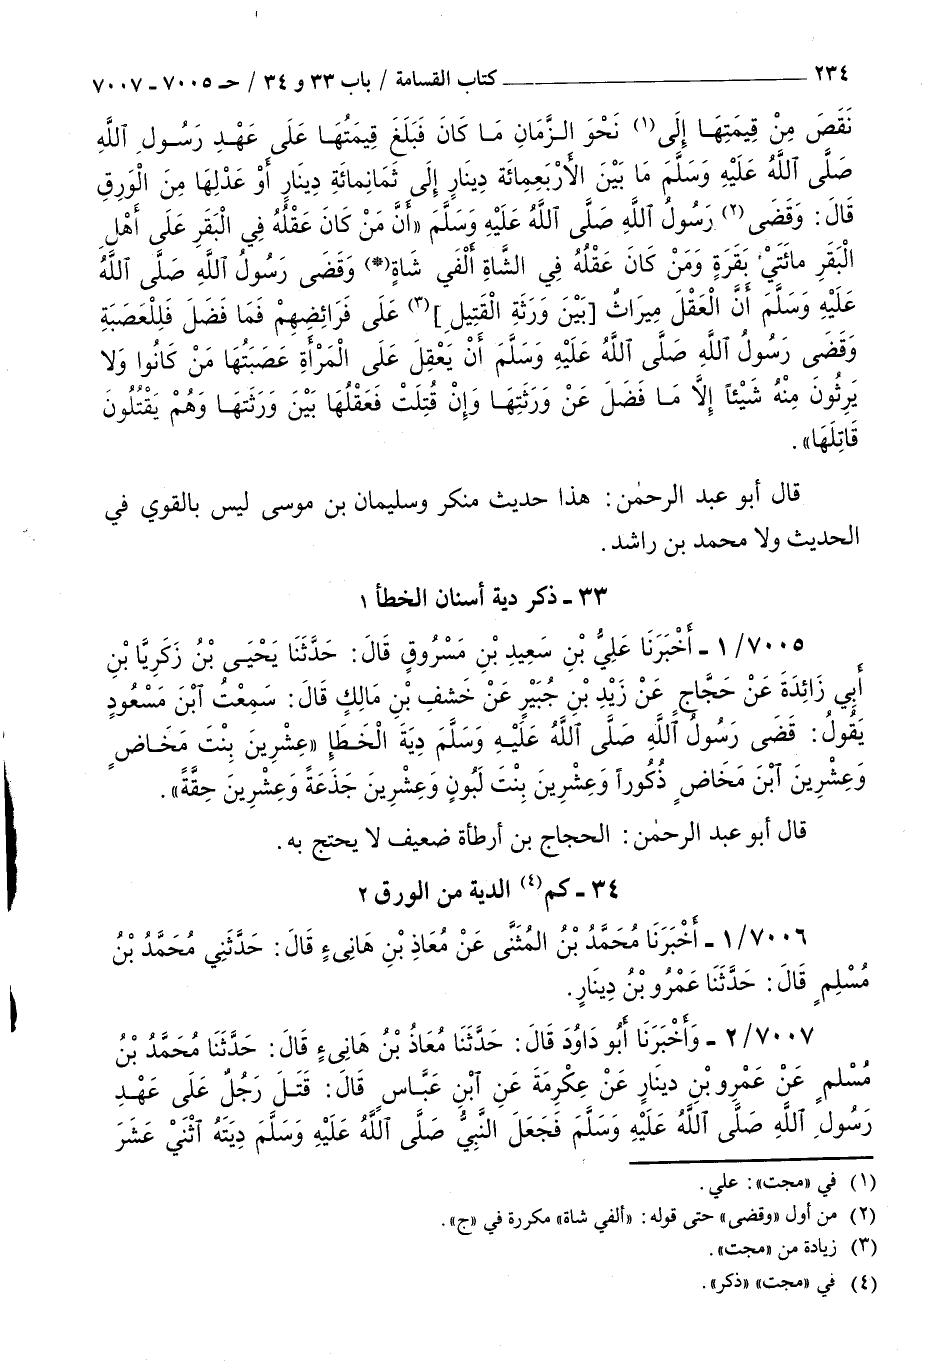 ٢٣٤ ــــــــــــــــــــ كتاب القسامة / باب ٣٣ و ٣٤ / حـ ٧٠٠٥ ـ ٧٠٠٧
نَقَصَ مِنْ قِيمَتِهَا إِلَى(١) نَحْوَ الزَّمَانِ مَا كَانَ فَبَلَغَ قِيمَتُهَا عَلَى عَهْدِ رَسُولِ ٱللَّهِ
صَلَّى ٱللَّهُ عَلَيْهِ وَسَلَّمَ مَا بَيْنَ الأَرْبَعِمِائَة دِينَارٍ إِلَى ثَمَانِمائَةِ دِينَارٍ أَوْ عَدْلِهَا مِنَ الْوَرِقِ
قَالَ: وَقَضَى(٢) رَسُولُ ٱللَّهِ صَلَّى ٱللَّهُ عَلَيْهِ وَسَلَّمَ «أَنَّ مَنْ كَانَ عَقْلُهُ فِي الْبَقَرِ عَلَى أَهْلِ
الْبَقَرِ مائَتَيْ بَقَرَةٍ وَمَنْ كَانَ عَقْلُهُ فِي الشَّاةِ أَلْفَي شَاةٍ(*) وَقَضَى رَسُولُ ٱللَّهِ صَلَّى ٱللَّهُ
عَلَيْهِ وَسَلَّمَ أَنَّ الْعَقْلَ مِيرَاثٌ [بَيْنَ وَرَثَةِ الْقَتِيلِ](٣) عَلَى فَرَائِضِهِمْ فَمَا فَضَلَ فَلِلْعَصَبَةِ
وَقَضَى رَسُولُ ٱللَّهِ صَلَّى ٱللَّهُ عَلَيْهِ وَسَلَّمَ أَنْ يَعْقِلَ عَلَى الْمَرْأَةِ عَصَبَتُهَا مَنْ كَانُوا وَلا
يَرِثُونَ مِنْهُ شَيْئاً إِلَّا مَا فَضَلَ عَنْ وَرَثَتِهَا وَإِنْ قُتِلَتْ فَعَقْلُهَا بَيْنَ وَرَثَتِهَا وَهُمْ يَقْتُلُونَ
قَاتِلَهَا».
قال أبو عبد الرحمٰن: هذا حديث منكر وسليمان بن موسى ليس بالقوي في
الحديث ولا محمد بن راشد.
٣٣ ـ ذكر دية أسنان الخطأ ١
٧٠٠٥/ ١ ـ أَخْبَرَنَا عَلِيُّ بْنِ سَعِيدِ بْنِ مَسْرُوقٍ قَالَ: حَدَّثَنَا يَحْيَى بْنُ زَكَرِيَّا بْنِ
أَبِي زَائِدَةَ عَنْ حَجَّاجٍ عَنْ زَيْدِ بْنِ جُبَيْرٍ عَنْ خَشفِ بْنِ مَالِكٍ قَالَ: سَمِعْتُ ٱبْنَ مَسْعُودٍ
يَقُولُ: قَضَى رَسُولُ ٱللَّهِ صَلَّى ٱللَّهُ عَلَيْهِ وَسَلَّمَ دِيَةَ الْخَطَإِ «عِشْرِينَ بِنْتَ مَخَاضٍ
وَعِشْرِينَ ٱبْنَ مَخَاضٍ ذُكُوراً وَعِشْرِينَ بِنْتَ لَبُونٍ وَعِشْرِينَ جَذَعَةً وَعِشْرِينَ حِقَّةً».
قال أبو عبد الرحمٰن: الحجاج بن أرطأة ضعيف لا يحتج به.
٣٤ ـ كم(٤) الدية من الورق ٢
٧٠٠٦/ ١ ـ أَخْبَرَنَا مُحَمَّدُ بْنُ المُثَنَّى عَنْ مُعَاذِ بْنِ هَانِىءٍ قَالَ: حَدَّثَنِي مُحَمَّدُ بْنُ
مُسْلِمٍ قَالَ: حَدَّثَنَا عَمْرُو بْنُ دِينَارٍ.
٧٠٠٧/ ٢ ـ وَأَخْبَرَنَا أَبُو دَاوُدَ قَالَ: حَدَّثَنَا مُعَاذُ بْنُ هَانِىءٍ قَالَ: حَدَّثَنَا مُحَمَّدُ بْنُ
مُسْلِمٍ عَنْ عَمْرِو بْنِ دِينَارٍ عَنْ عِكْرِمَةَ عَنِ ٱبْنِ عَبَّاسٍ قَالَ: قَتَلَ رَجُلٌ عَلَى عَهْدِ
رَسُولِ ٱللَّهِ صَلَّى ٱللَّهُ عَلَيْهِ وَسَلَّمَ فَجَعَلَ النَّبِيُّ صَلَّى ٱللَّهُ عَلَيْهِ وَسَلَّمَ دِيَتَهُ ٱثْنَيْ عَشَرَ
(١) في «مجت»: علي.
(٢) من أول «وقضى» حتى قوله: «ألفي شاة» مكررة في «ج».
(٣) زيادة من «مجت».
(٤) في «مجت» «ذكر».